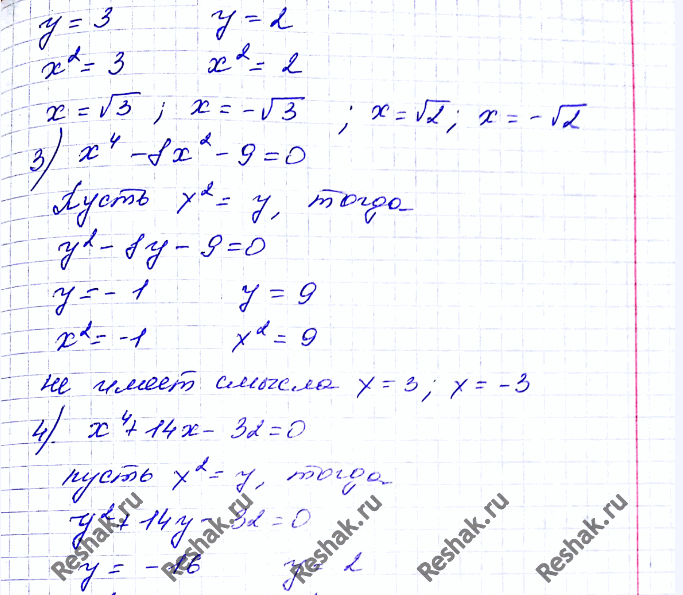 y = 3 y = 2
x² = 3 x² = 2
x = √3 ; x = -√3 ; x = √2 ; x = -√2
3) x⁴ - 8x² - 9 = 0
Пусть x² = y, тогда
y² - 8y - 9 = 0
y = - 1 y = 9
x² = -1 x² = 9
не имеет смысла x = 3 ; x = -3
4). x⁴ + 14x - 32 = 0
пусть x² = y, тогда
y² + 14y - 32 = 0
y = -16 y = 2
Reshak.ru Reshak.ru Reshak.ru Reshak.ru Reshak.ru